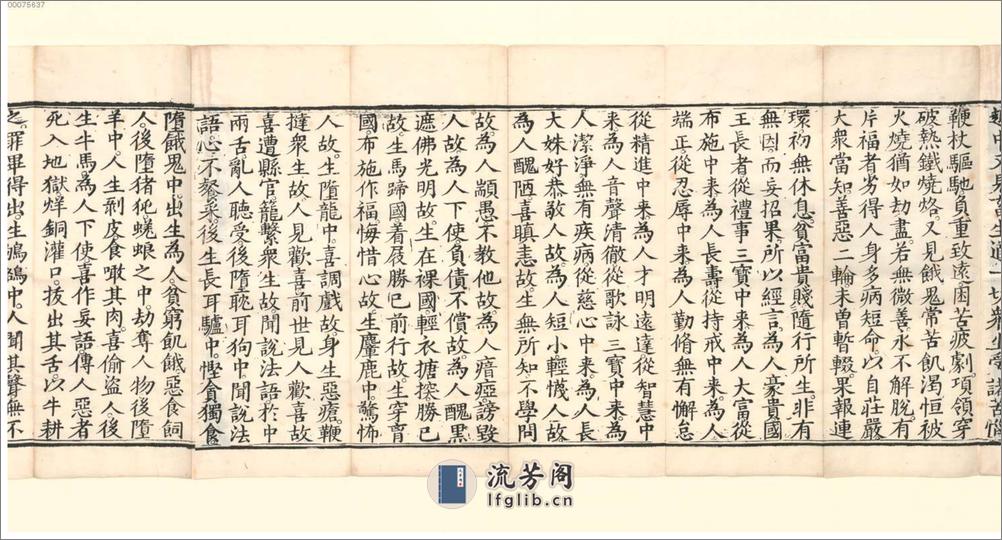 00075637
鞭杖驅馳負重致遠困苦疲劇項領穿
破熱鐵燒烙又見餓鬼常苦飢渴恒被
火燒猶如劫盡若無微善永不解脫有
片福者劣得人身多病短命以自莊嚴
大衆當知善惡二輪未曾暫輟果報連
環初無休息貧富貴賤隨行所生非有
無因而妄招果所以經言為人豪貴國
王長者從禮事三寶中来為人大富從
布施中来為人長壽從持戒中来為人
端正從忍辱中来為人勤脩無有懈怠
從精進中来為人才明遠達從智慧中
来為人音聲清徹從歌詠三寶中来為
人潔淨無有疾病從慈心中来為人長
大姝好恭敬人故為人短小輕懱人故
為人醜陋喜瞋恚故生無所知不學問
故為人顓愚不教他故為人瘖瘂謗毀
人故為人下使負債不償故為人醜黑
遮佛光明故生在裸國輕衣搪揬勝已
故生馬蹄國着屐勝已前行故生穿育
國布施作福悔惜心故生麞鹿中驚怖
人故生墮龍中喜調戲故身生惡瘡鞭
撻衆生故人見歡喜前世見人歡喜故
喜遭縣官籠繫衆生故聞說法語於中
兩舌亂人聽受後墮耽耳狗中聞說法
語心不餐采後生長耳驢中慳貪獨食
墮餓鬼中出生為人貧窮飢餓惡食飼
人後墮猪㹠蜣蜋之中劫奪人物後墮
羊中人生剥皮食噉其肉喜偷盜人後
生牛馬為人下使喜作妄語傳人惡者
死入地獄烊銅灌口拔出其舌以牛耕
之罪畢得出生鴝鵒中人聞其聲無不
流芳阁
lfglib.cn